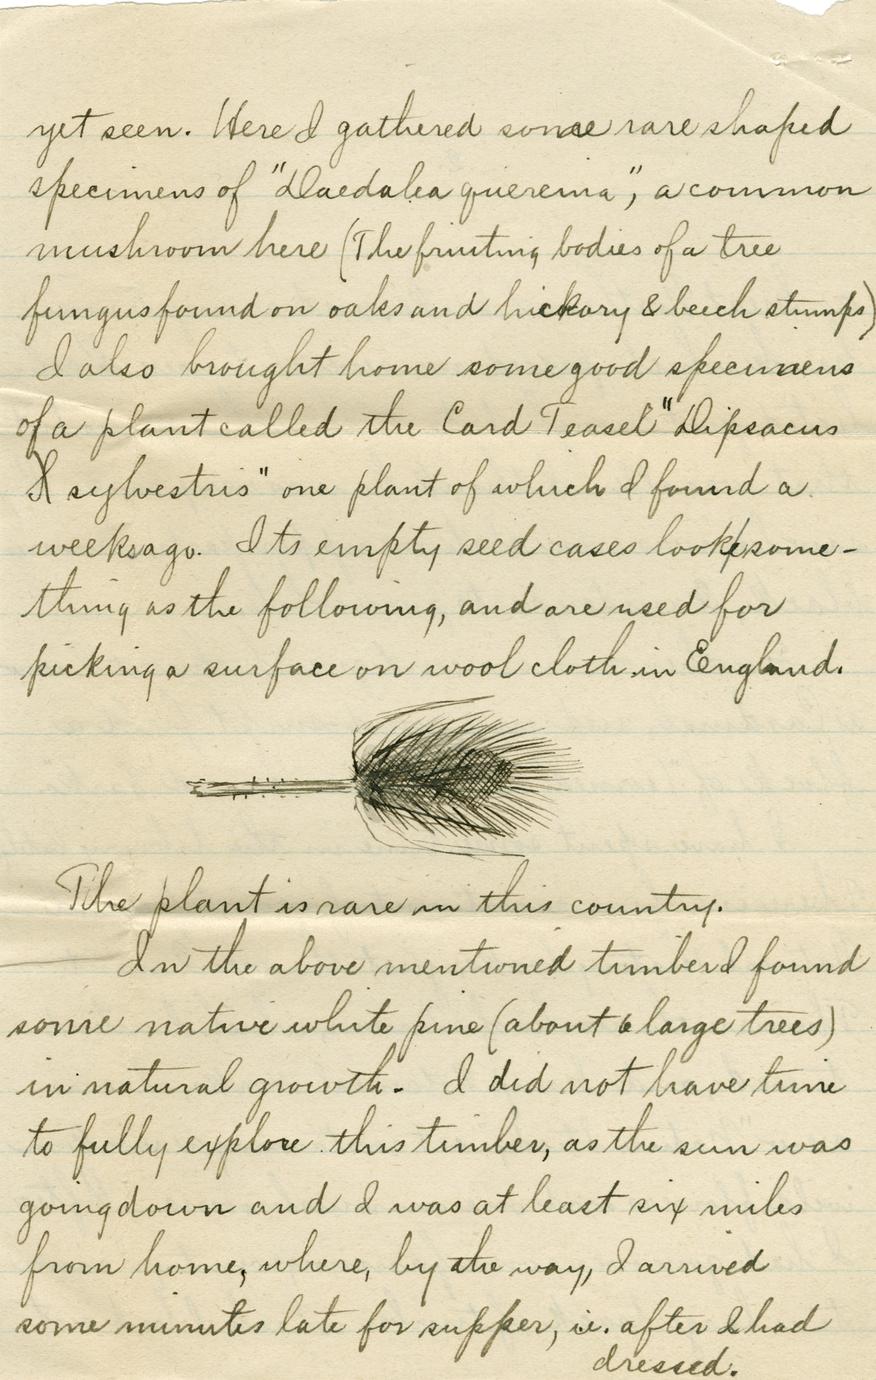 yet seen. Here I gathered some rare shaped
specimens of "Daedalea querina", a common
mushroom here (The fruiting bodies of a tree
fungus found on oaks and hickory & beech stumps)
I also brought home some good specimens
of a plant called the Card Teasel "Dipsacus
sylvestris" one plant of which I found a
weeks ago. Its empty seed cases look some-
thing as the following, and are used for
picking a surface on wool cloth in England.
The plant is rare in this country.
In the above mentioned timber I found
some native white pine (about 6 large trees)
in natural growth. I did not have time
to fully explore this timber, as the sun was
going down and I was at least six miles
from home, where, by the way, I arrived
some minutes late for supper, i.e. after I had
dressed.